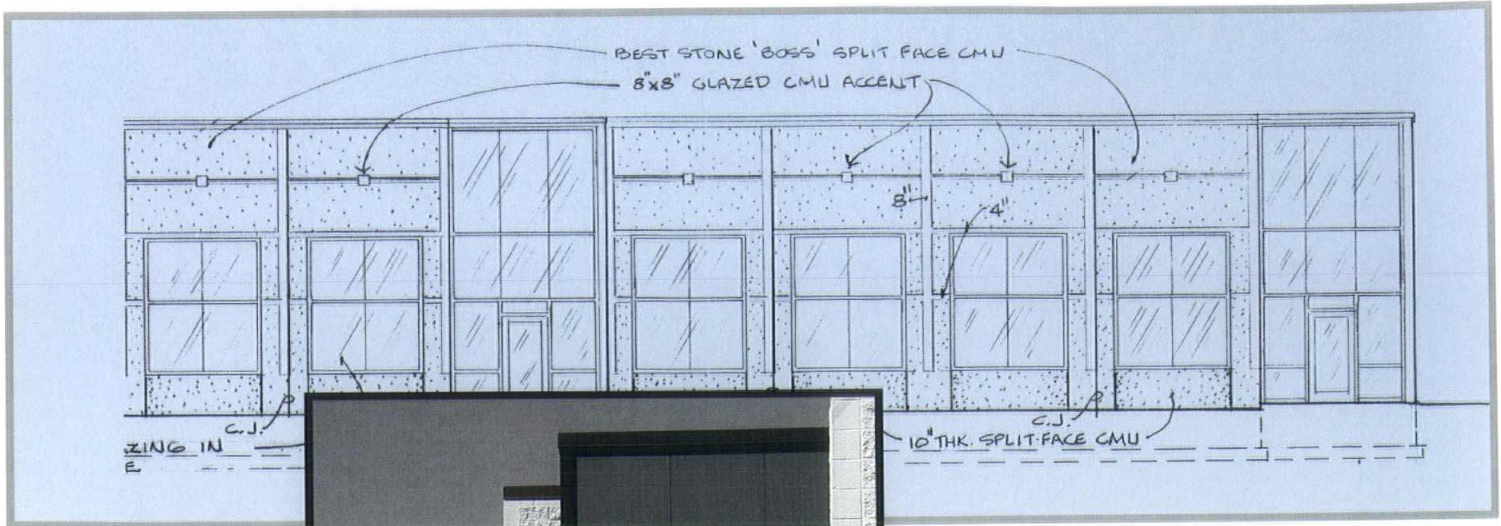 BEST STONE 'BOSS' SPLIT FACE CMU
8"x8" GLAZED CMU ACCENT
8"
4"
C.J.
C.J.
ZING IN
E.
10" THK. SPLIT-FACE CMU